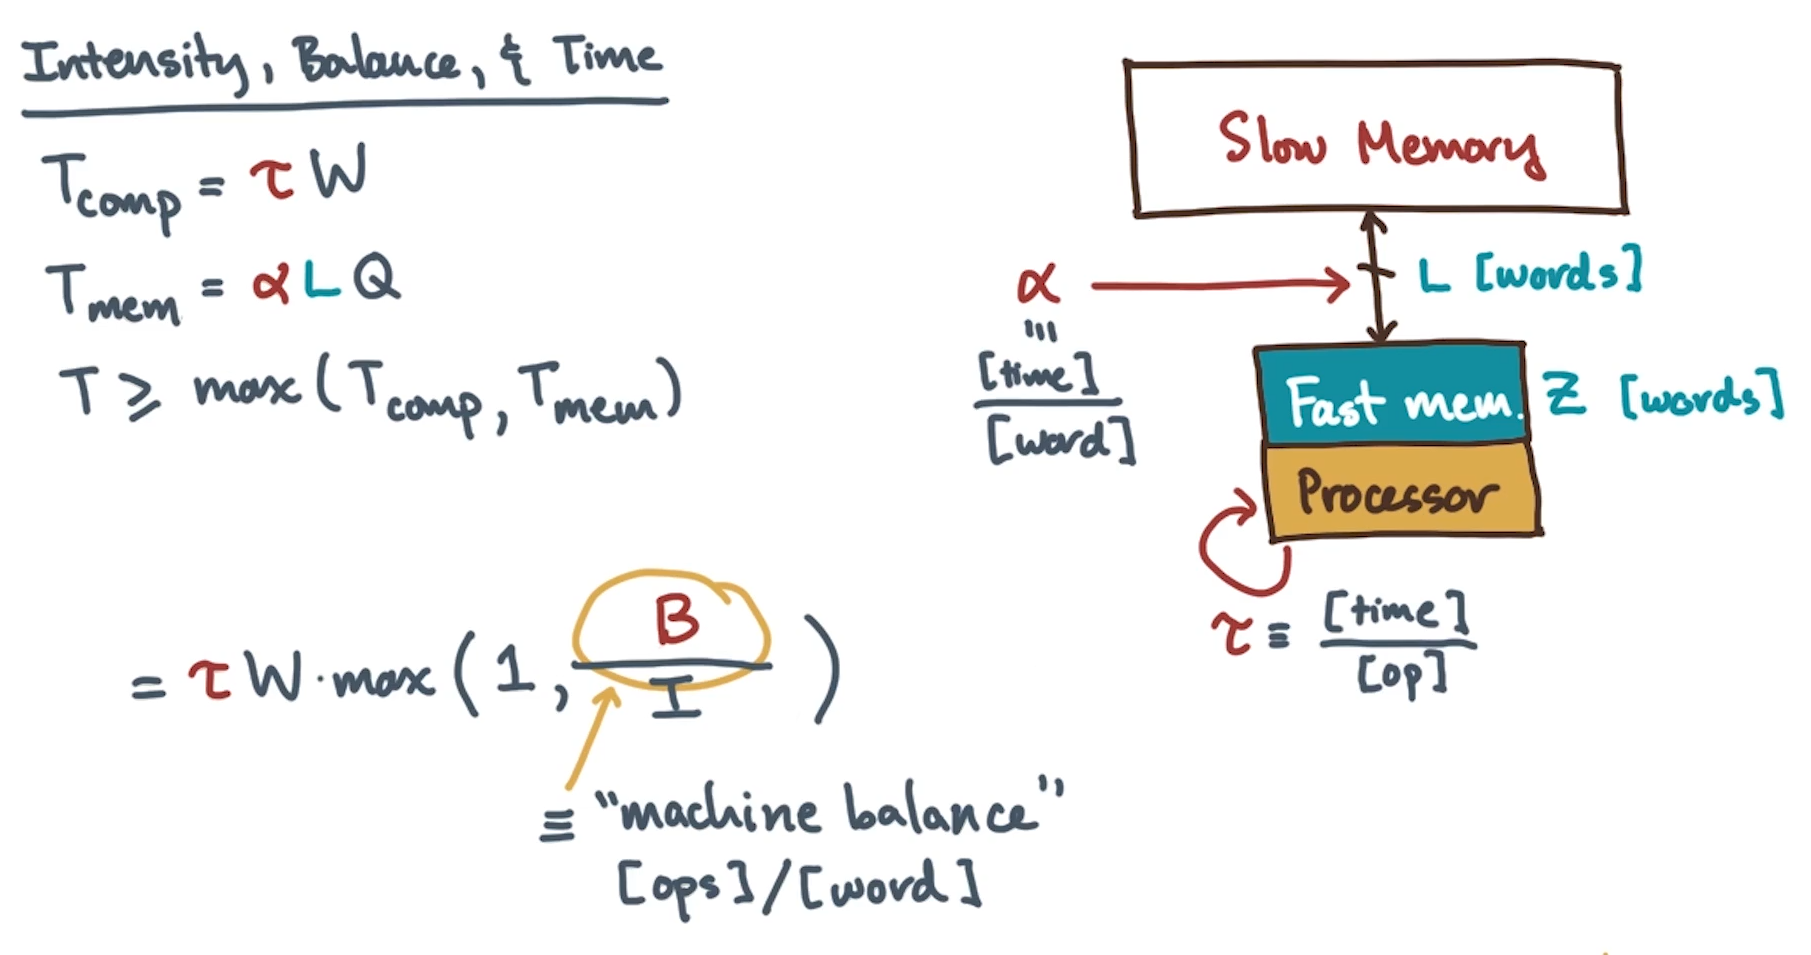 Intensity, Balance, & Time
T_comp = τ W
T_mem = α L Q
T ≥ max(T_comp, T_mem)
= τ W · max(1, B/I)
≡ "machine balance"
[ops]/[word]
Slow Memory
L [words]
α
≡
[time]
[word]
Fast mem.
Z [words]
Processor
τ ≡ [time]/[op]